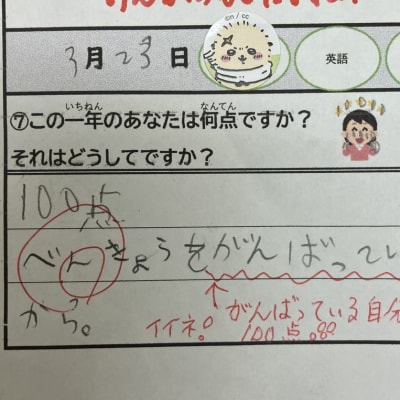 3月23日
英語
⑦この一年のあなたは何点ですか？
それはどうしてですか？
100点
べんきょうをがんばってい
から。
イイネ。がんばっている自分
100点。